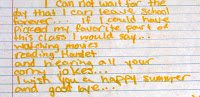 I can not wait for the
day that I can leave School
forever.... if I could have
picked my favorite part of
this class I would say...
watching movies
reading Hamlet
and hearing all your
corny jokes...
I wish you a happy summer
and good bye...